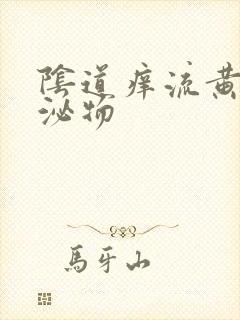 陰道痒流黄
泌物
馬牙山